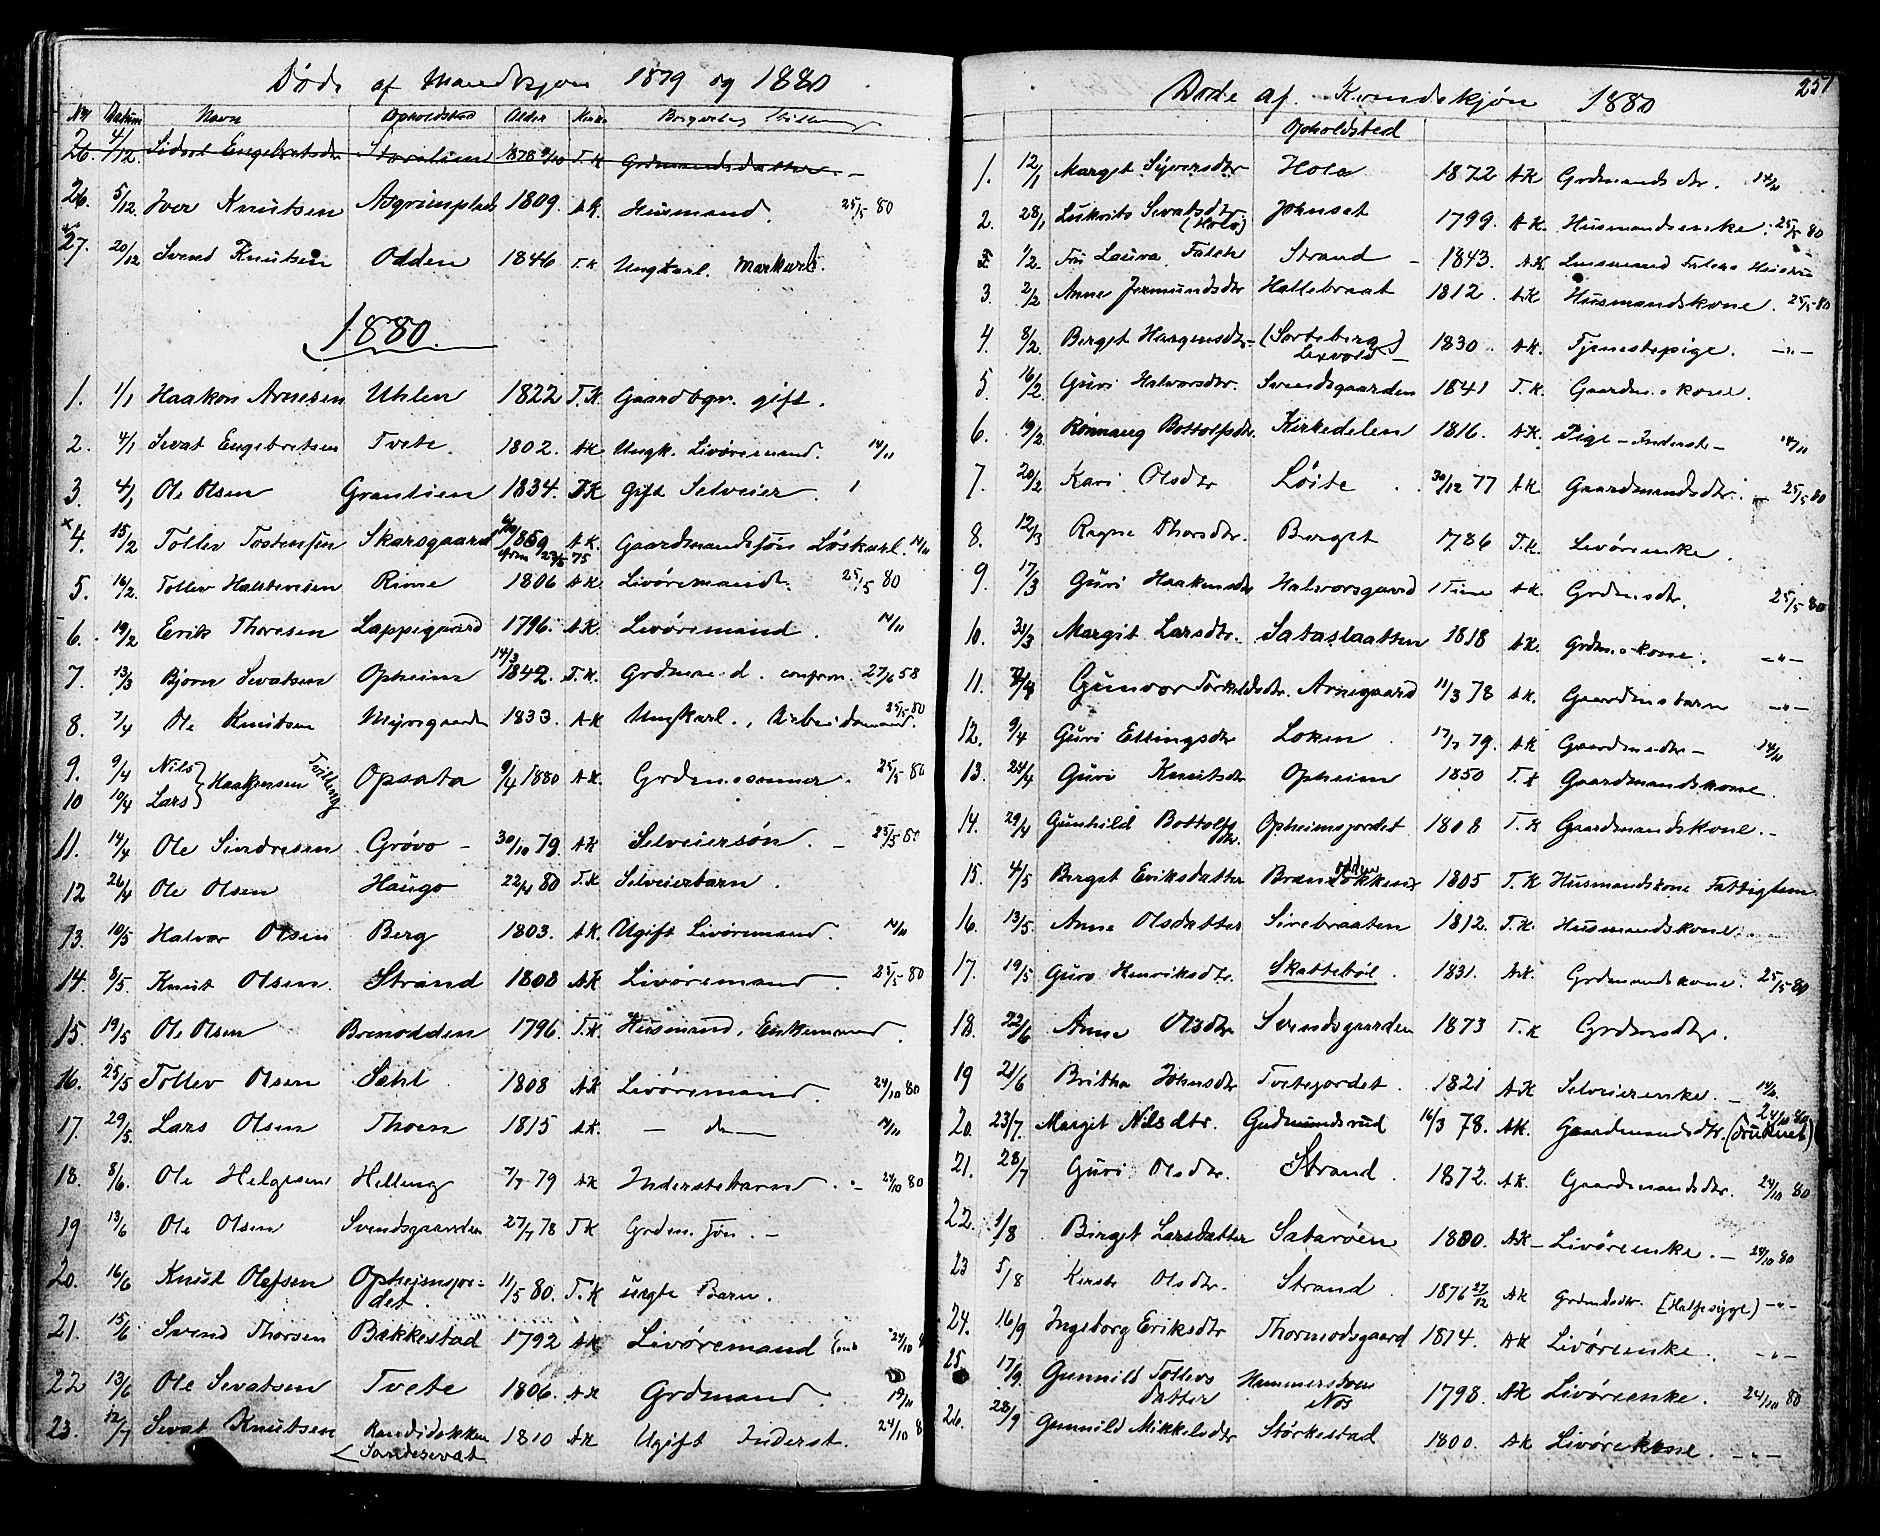 Døde af Mandkjøn 1879 og 1880
No Datum Navn Opholdsted Alder Kirke Borgerlig Stilling
26. 4/12. Sidsel Engebretsdtr 1878 T.K Grdmandsdatter
26. 5/12. Iver Knutsen Asgrimplads 1809. A.K. Husmand. 25/5 80
27. 20/12 Svend Knutsen Odden 1846 T.K Ungkarl. Markarb.
1880.
1. 1/1 Haakon Arnesen Uhlen 1822 T.K Gaardbgr. gift.
2. 4/1 Sevat Engebretsen Tvete 1802. AK Ungk. Livøremand. 14/11
3. 4/1 Ole Olsen Grønlien 1834. T.K gift Selveier. 1
×4. 15/2 Tollev Tostensen Skarsgaard 1859 A.K. Gaardmandssøn Løskarl. 14/11
23/5 75
5. 16/2. Tollev Halstensen Rime 1806 A.K Livøremand. 25/5 80
6. 19/2 Erik Thoresen Lappegaard 1796. A.K. Livøremand. 14/11
7. 13/3 Bjørn Sevatsen Opheim 14/3 1842. T.K. Grdmand. confrm. 27/6 58
8. 7/4 Ole Knutsen Myrsgaarden 1833. AK Ungkarl., Arbeidsmand. 25/5 80
9. 9/4 Nils } Haakensen Tvilling Opsata 9/4 1880 A.K. Grdm.sønner. 25/5 80
10 10/4 Lars }
11. 14/4 Ole Sindresen Grøvo - 30/10 79. AK Selveiersøn. 25/5 80
12 26/4 Ole Olsen Haugo 22/4 80 T.K Selveierbarn.
13. 10/5 Halvor Olsen Berg 1803. A.K. Ugift Livøremand. 14/11
14. 8/5. Knut Olsen. Strand 1808 AK Livøremand. 25/5 80
15. 19/5 Ole Olsen Brenodden 1796. T.K Husmand, Enkemand.
16. 25/5 Tollev Olsen Sehl 1808 AK Livøremand. 24/10 80
17. 29/5. Lars Olsen Thoen 1815 A.K. — do — 14/11
18. 8/6. Ole Helgesen Helling 7/7 79 AK Inderstebarn. - 24/10 80
19 13/6 Ole Olsen Svendsgaarden 27/7 78 T.K Grdm. søn. -
20. 16/6 Knut Olefsen Opheimsjor=
det. 11/5 80. T.K uegte Barn.
21. 15/6 Svend Thorsen Bakkestad 1792 AK Livøremand 24/10 8
22 13/6 Ole Sevatsen Tvete 1806. AK Grdmand. 14/11
23. 12/7 Sevat Knutsen Randidokken 1810 AK Ugift Inderst. 24/10 8
Sandesevat
Døde af Kvindekjøn 1880 251
Opholdsted
1. 12/1 Marget Syversdtr Hola 1872 AK Grdmandsdtr. 14/11
2. 28/1 Sevatsdtr. (Holo) Johuset 1799. A.K. Husmandsenke. 25/5 80
1/2. Fru Laura Falch Strand - 1843. A.K. Lensmand Falchs Hustru
3. 2/2 Anne Jermundsdtr Hallebraat 1812. AK Husmandskone. 25/5 80
4. 8/2. Berget Haagensdtr- (Sorteberg) 1830. A.K. Tjenestepige. -„-
5. 16/2 Guri Halvorsdtr. Svendsgaarden 1841 T.K. Gaardm.s kone.
6. 19/2. Rønnaug Bottolfsdtr. Kirkedelen 1816. A.K. Pige - Inderst - 14/11
7. 20/2 Kari Olsdtr Løite 30/12 77 A.K Gaardmandsdtr. 25/5 80
8. 12/3 Ragne Thorsdtr. Berget 1786 T.K. Livørenke.
9. 17/3 Guri Haakensdtr Halvorsgaard 1 Time A.K. Grdmsdtr. 25/5 80
10. 30/3 Margit Larsdtr. Sataslaatten 1818 AK. Grdm.s kone. -„-
11. 7/4 Gunvor Torkelsdtr. Arnegaard 11/3 78 A.K. Gaardmsbarn -„-
12. 9/4 Guri Ellingsdtr Loken 17/7 79. AK Gaardmsdtr - 14/11
13. 25/4 Guri Knutsdtr Opheim 1850 T.K Gaardmandskone.
14. 29/4 Gunhild Bottolfs
dtr. Opheimsjordet 1808 T.K Gaardmandskone.-
15. 4/5 Berget Eriksdatter odden 1805 T.K Husmandskone Fattiglem
16. 13/5 Anne Olsdatter Sirebraaten 1812. T.K. Husmandskone.
17. 19/5 Guro Henriksdtr. Skattebøl 1831. A.K. Grdmandskone. 25/5 80
18. 22/6 Anne Olsdtr Svendsgaarden 1873 T.K Grdmsdtr.
19 21/6 Britha Johnsdtr Tvetejordet. 1821 A.K Selveierenke. 14/11
20. 23/7. Margit Nilsdtr. Gudmundsrud 16/3 78. AK. Gaardmandsdtr. (Druknet) 24/10 80
21. 28/7 Guri Olsdtr. Strand. 1872. AK. Gaardmandsdtr. 24/10 80
22. 1/8 Birget Larsdatter Satarøen 1800. AK - Livørenke. - 24/10 80
23 5/8 Kirsti Olsdtr. Strand. 1876 27/12 AK Grdmdsdtr. (Halsesyge) -„-
24. 16/9 Ingeborg Eriksdtr Thormodsgaard 1814. AK Livørenke. -„-
25. 17/9. Gunnild Tollevs
datter Hammersbøen
Nos 1798. AK Livørenke. 24/10 80
26. 28/9 Gunnild Mikkelsdtr Størkestad 1800. AK Livørekone. -„-